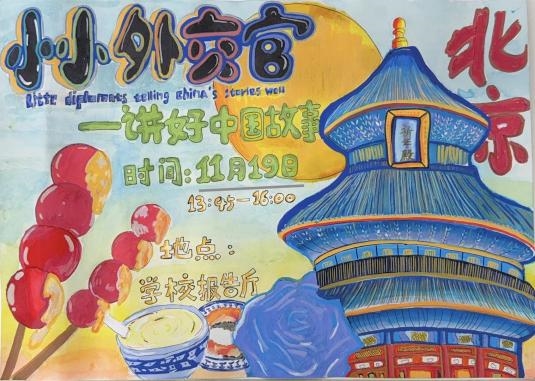 小小外交官
北京
Bitte diplomats telling China's stories well
一讲好中国故事
时间:11月19日
13:45-16:00
地点:
学校报告厅
祈年殿